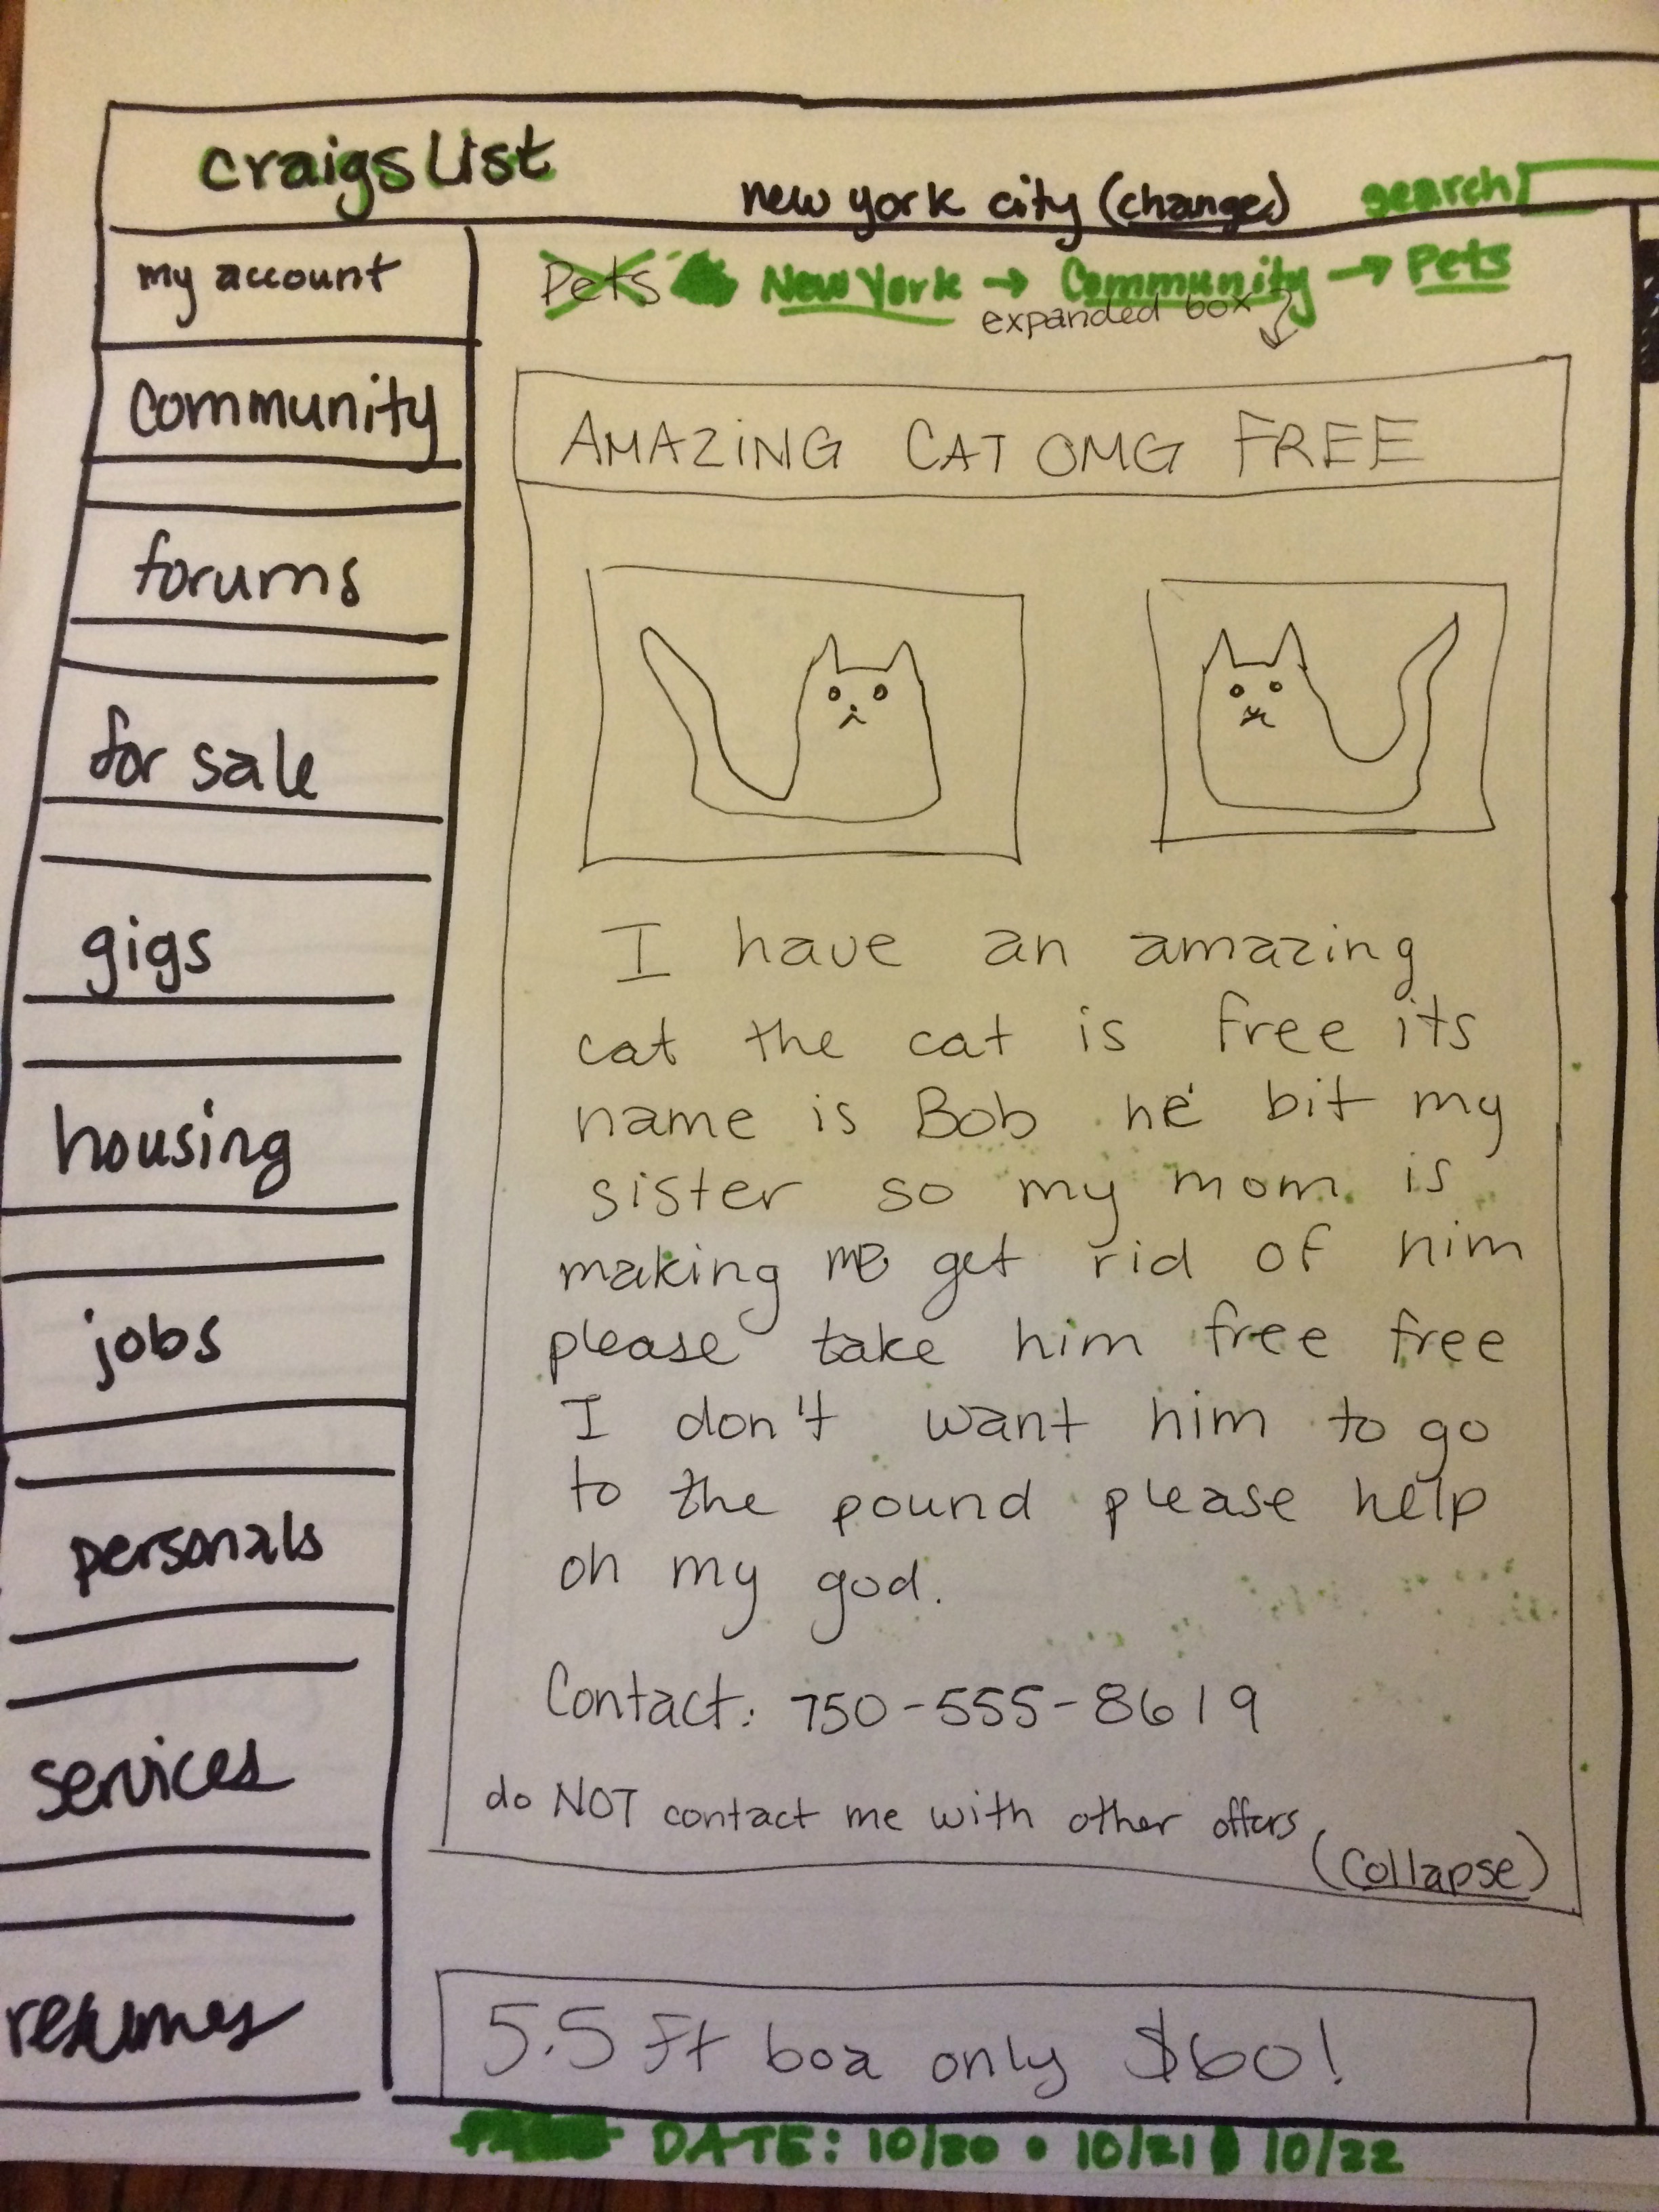 craigslist
new york city (change)
search
my account
Pets New York → Community → Pets
expanded box
community
forums
for sale
gigs
housing
jobs
personals
services
resumes
AMAZING CAT OMG FREE
I have an amazing
cat the cat is free its
name is Bob he bit my
sister so my mom is
making me get rid of him
please take him free free
I don't want him to go
to the pound please help
oh my god.
Contact: 750-555-8619
do NOT contact me with other offers
(collapse)
5.5 ft boa only $60!
DATE: 10/20 • 10/21 10/22